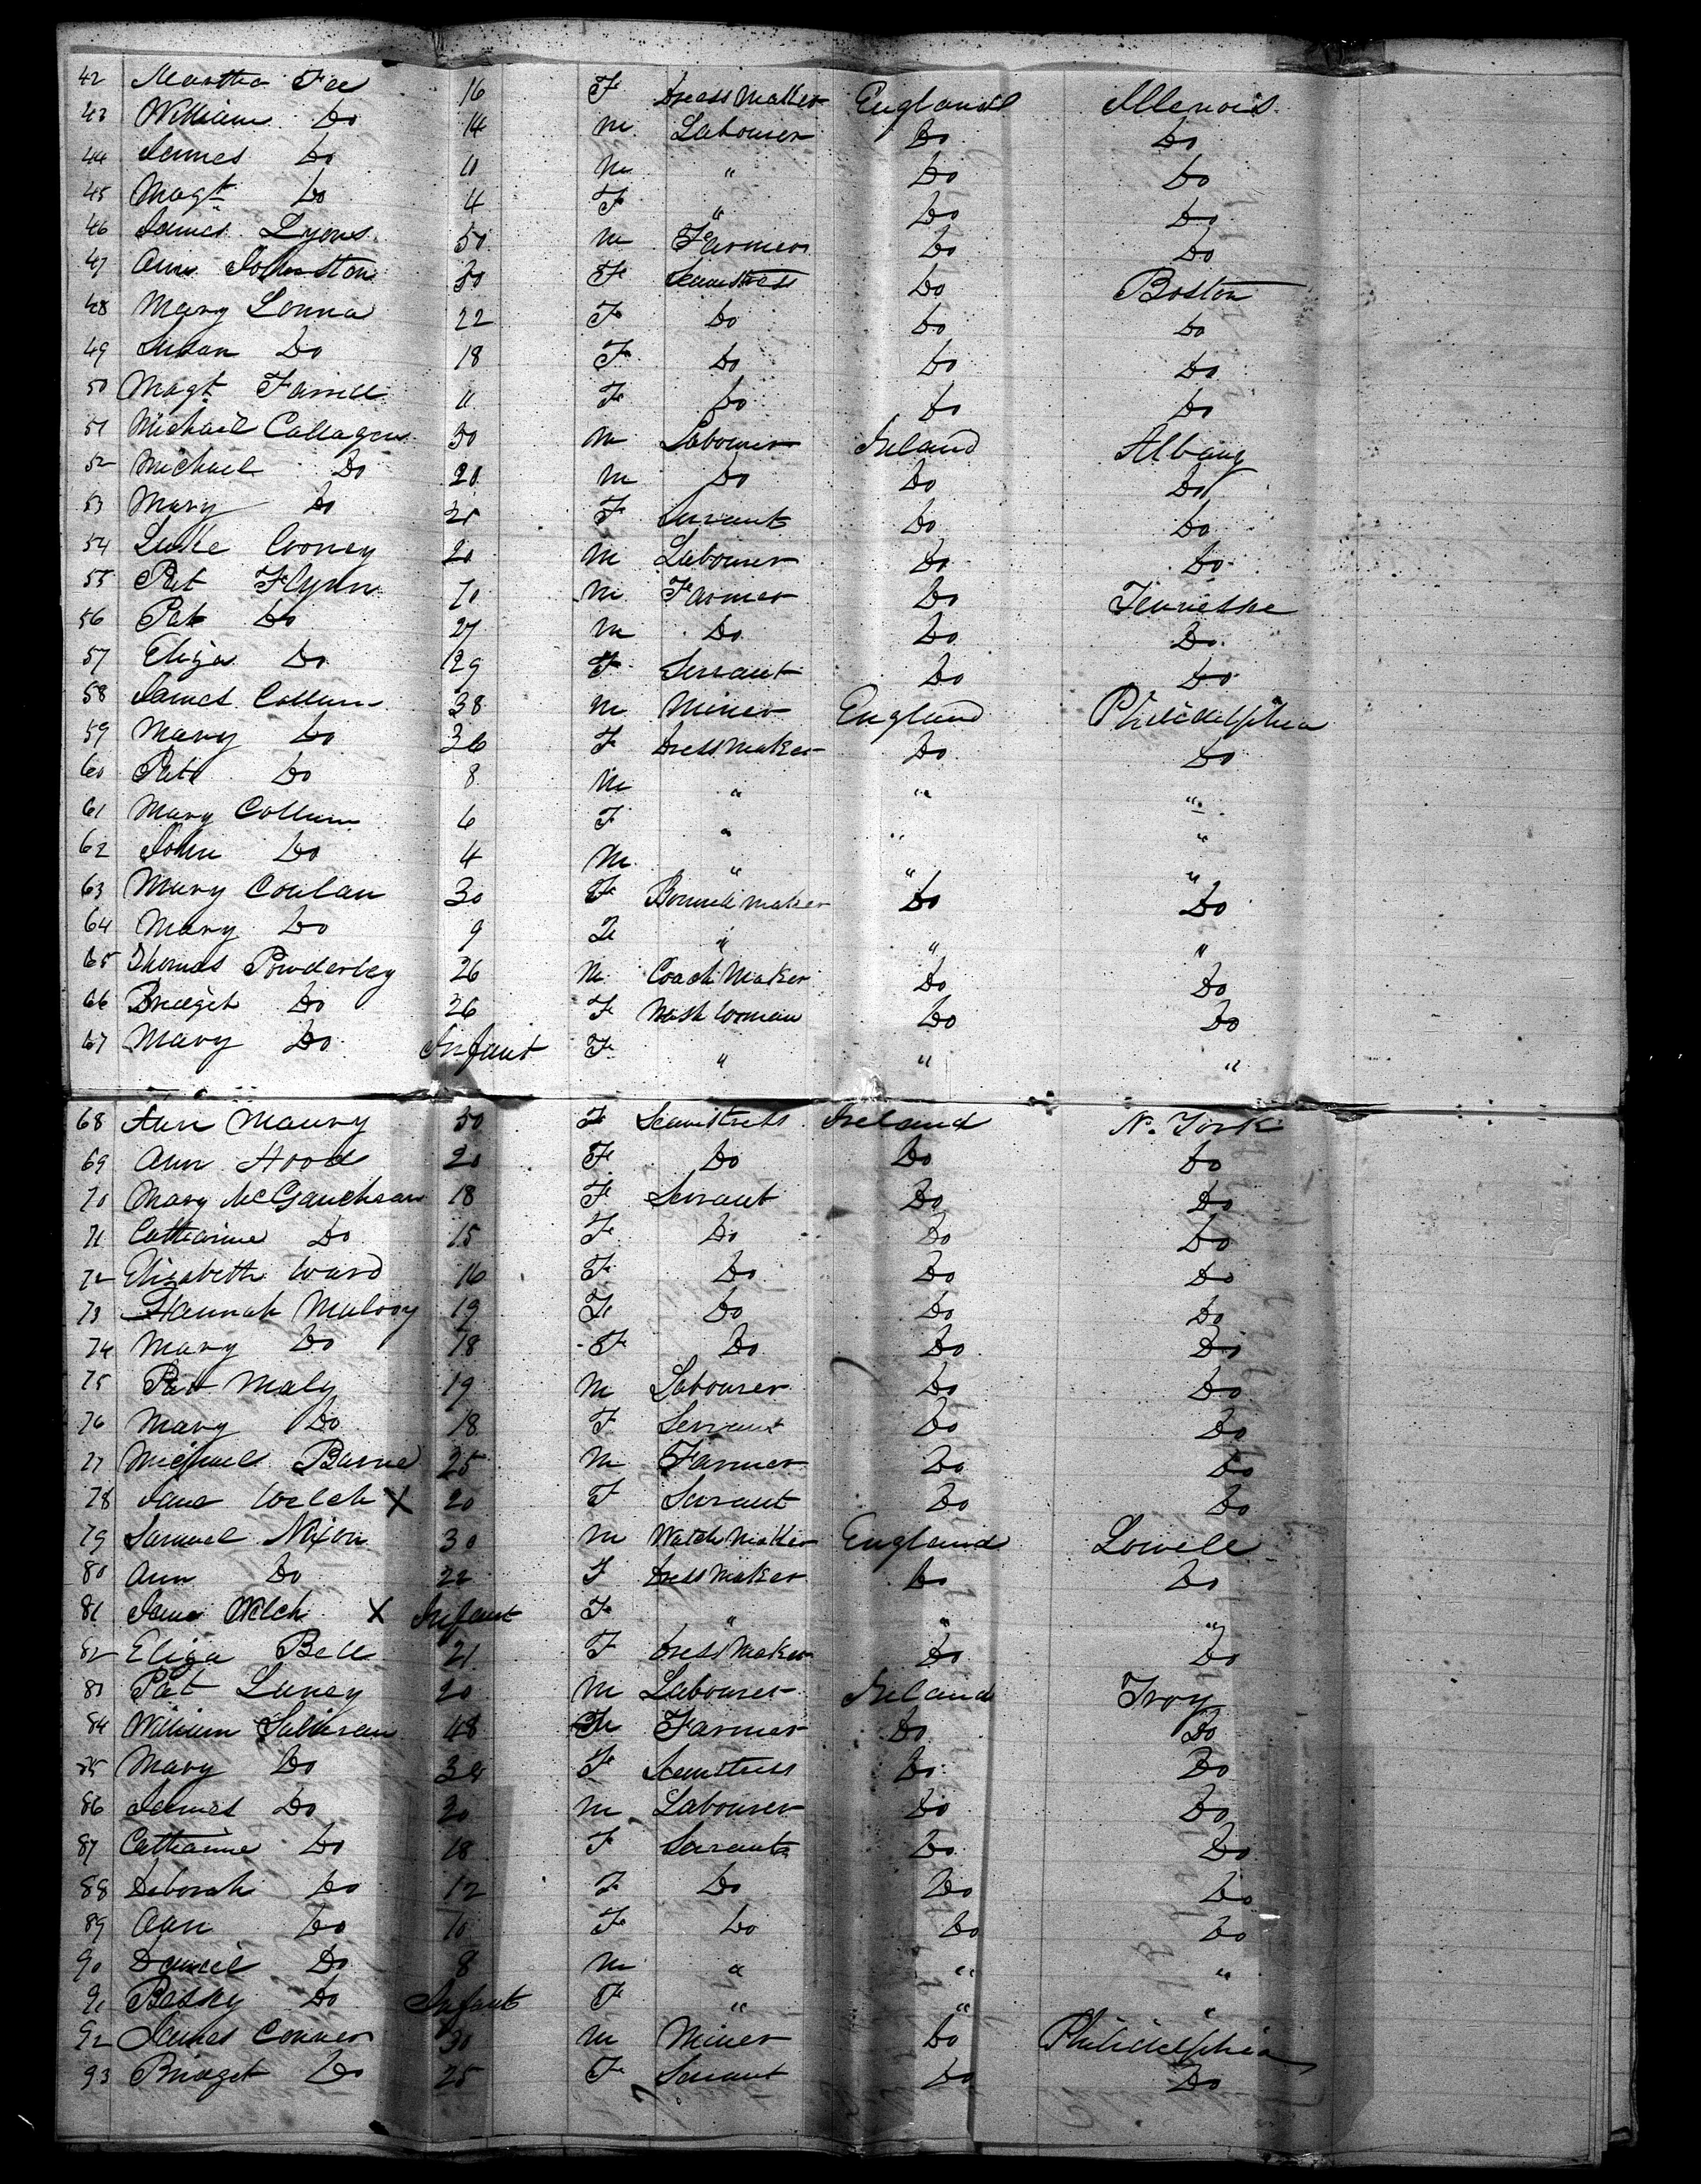 42 Martha Fee 16 F Dress Maker England Illenois
43 William Do 14 M Labourer Do Do
44 James Do 11 M " Do Do
45 Magt Do 4 F " Do Do
46 James Lyons 50 M Farmer Do Do
47 Ann Johnston 30 F Seamstress Do Boston
48 Mary Lonna 22 F Do Do Do
49 Susan Do 18 F Do Do Do
50 Magt Farrell 11 F Do Do Do
51 Michail Callagen 30 M Labourer Ireland Albany
52 Michael Do 20 M Do Do Do
53 Mary Do 25 F Servant Do Do
54 Luke Cooney 20 M Labourer Do Do
55 Pat Flynn 70 M Farmer Do
56 Pat Do 27 M Do Do Do
57 Eliza Do 29 F Servant Do Do
58 James Collum 38 M Miner England Philidelphia
59 Mary Do 36 F Dress Maker Do Do
60 Pat Do 8 M " " "
61 Mary Collum 6 F " " "
62 John Do 4 M " " "
63 Mary Conlan 30 F Bonnet maker Do Do
64 Mary Do 9 F " " "
65 Thomas Powderley 26 M Coach Maker Do Do
66 Bridget Do 26 F Wash Woman Do Do
67 Mary Do Infant F " " "
68 Ann Maury 50 F Seamstress Ireland N. York
69 Ann Hood 20 F Do Do Do
70 Mary 18 F Servant Do Do
71 Catharine Do 15 F Do Do Do
72 Elizabeth Ward 16 F Do Do Do
73 Hannah Mulooy 19 F Do Do Do
74 Mary Do 18 F Do Do Do
75 Pat Maly 19 M Labourer Do Do
76 Mary Do 18 F Servant Do Do
77 Michael 25 M Farmer Do Do
78 Jane Welch X 20 F Servant Do Do
79 Samuel Nixon 30 M Watch Maker England Lowell
80 Ann Do 22 F Dress Maker Do Do
81 Jane Welch X Infant F " " "
82 Eliza Bell 21 F Dress Maker Do Do
83 Pat Luney 20 M Labourer Ireland Troy
84 William Sullivan 48 M Farmer Do Do
85 Mary Do F Seamstress Do Do
86 James Do 20 M Labourer Do Do
87 Catharine Do 18 F Servant Do Do
88 Deborah Do 12 F Do Do Do
89 Ann Do 10 F Do Do Do
90 Daniel Do 8 M " " "
91 Bessey Do Infant F " " "
92 James Conner 30 M Miner Do Philidelphia
93 Bridget Do 25 F Servant Do Do